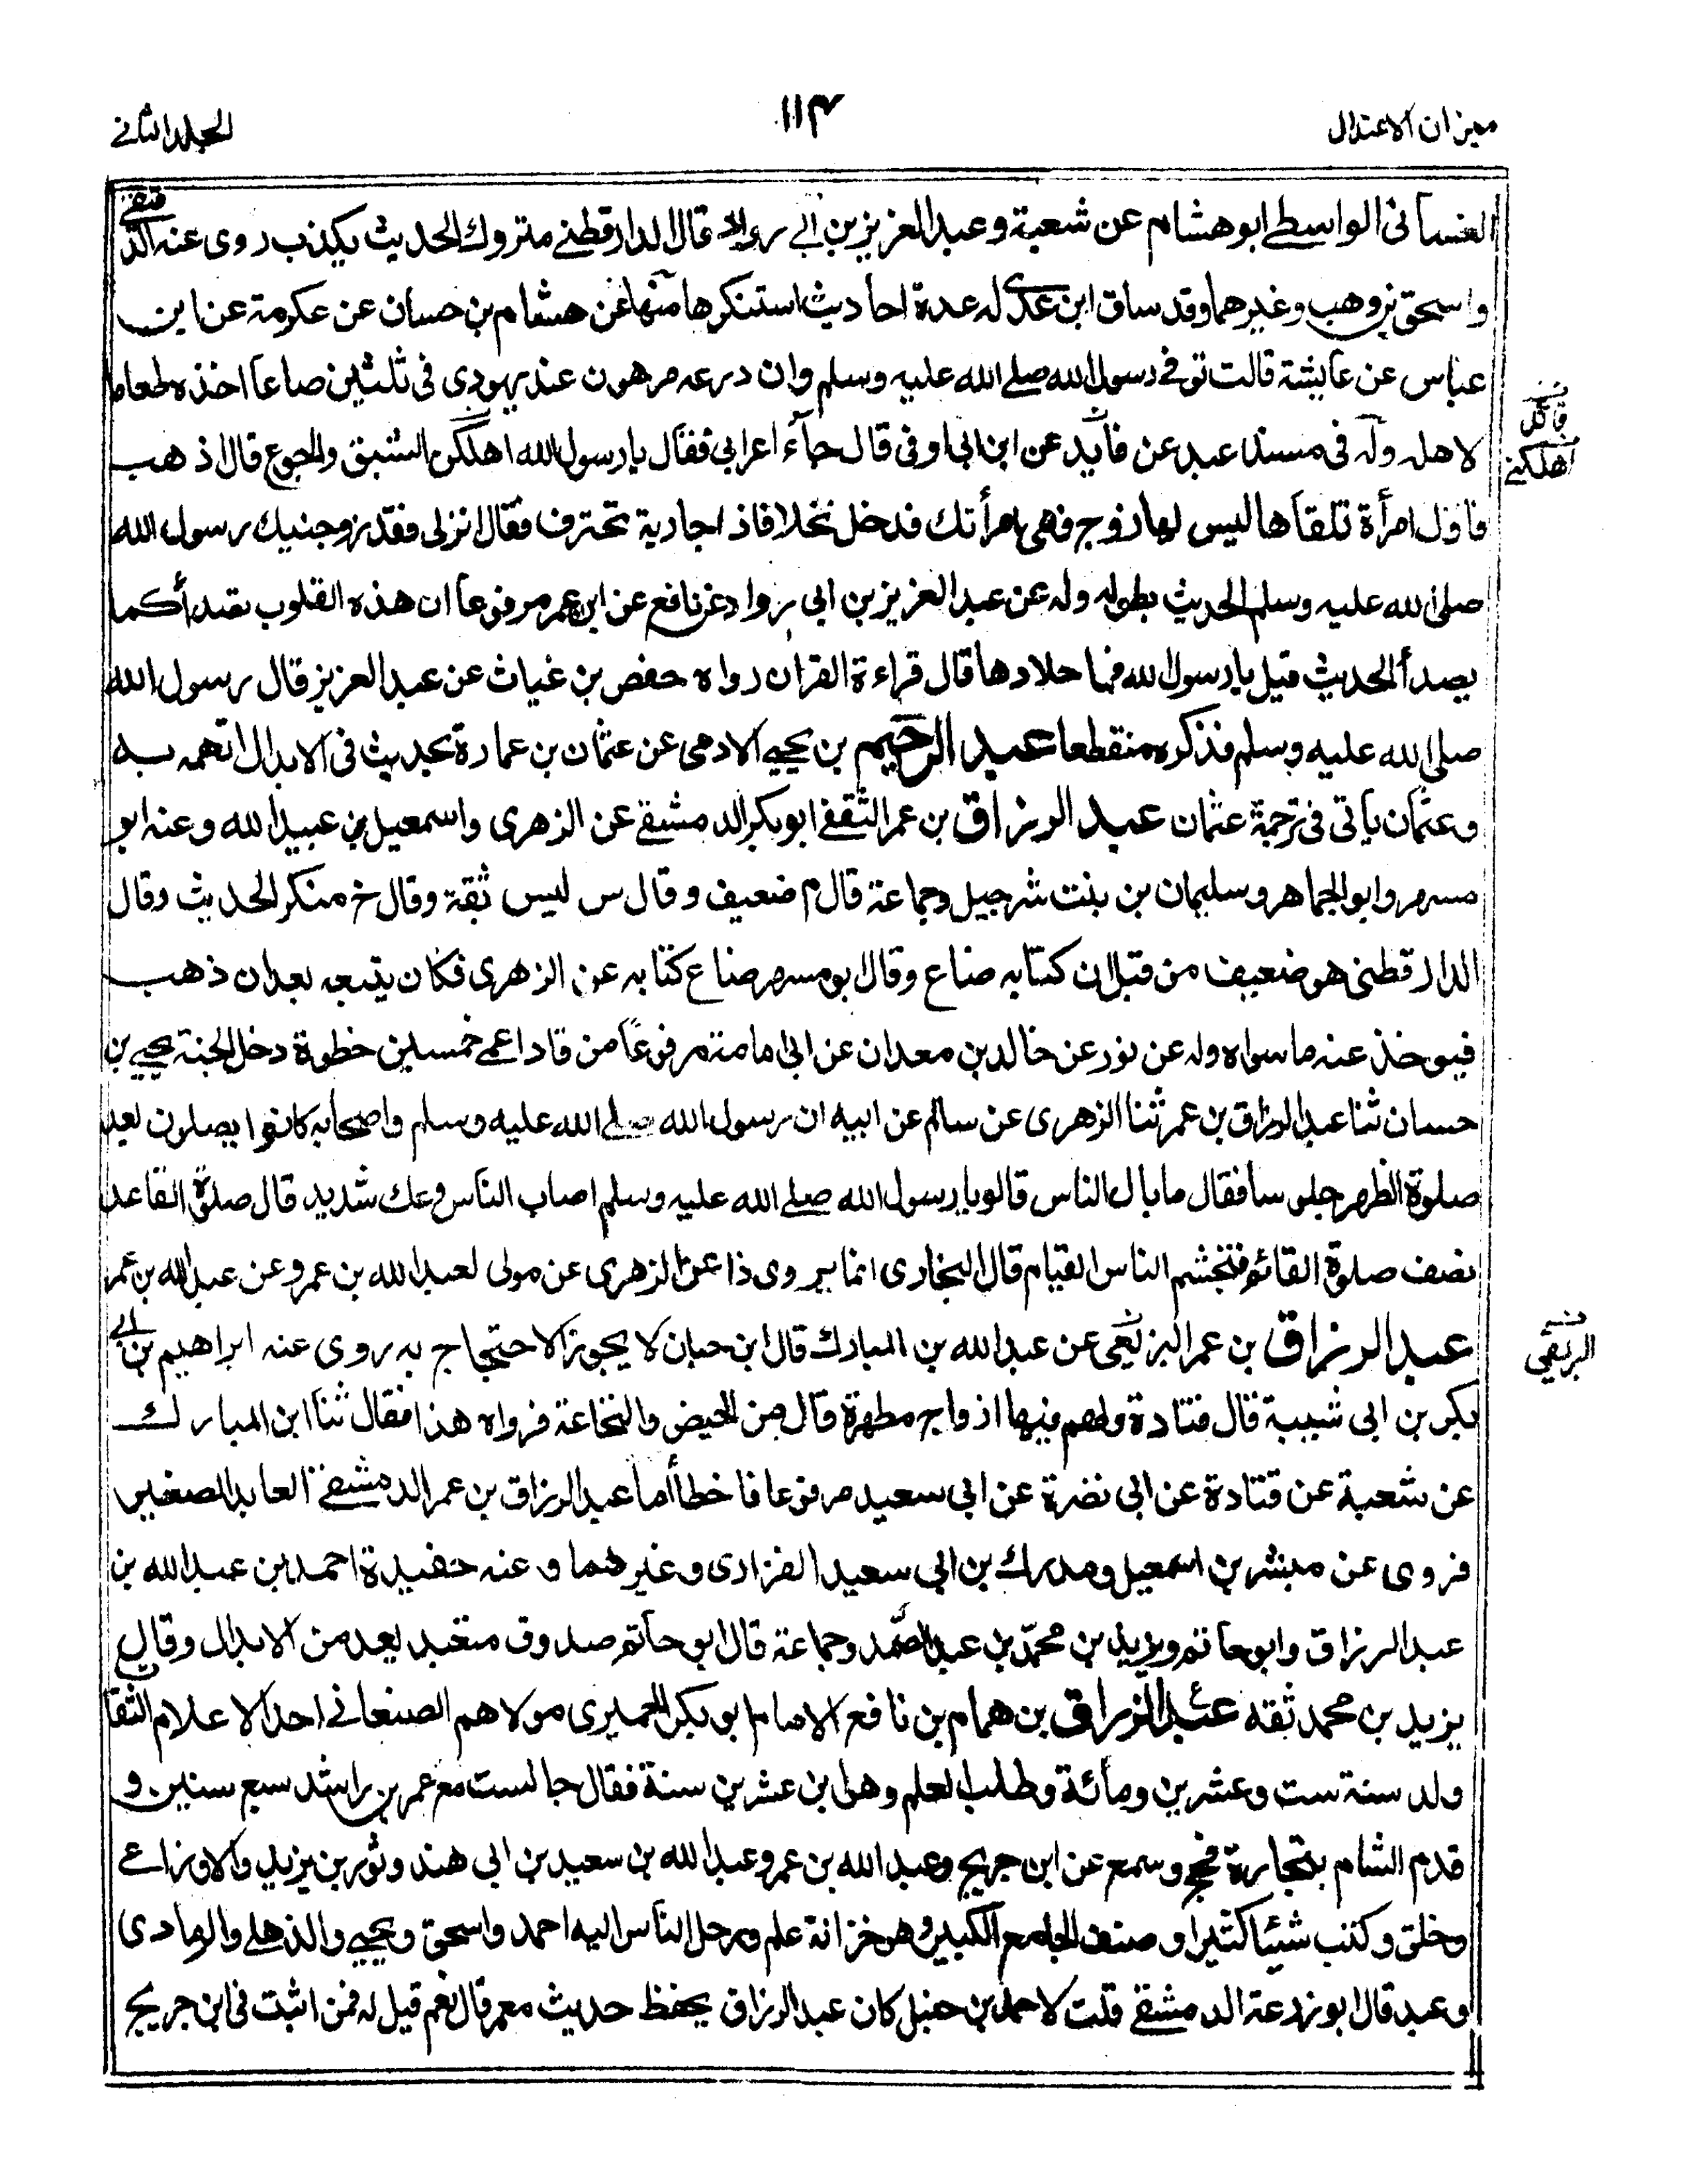 ميزان الاعتدال
١١٣
الجلد الثاني
الغساني الواسطي ابو هشام عن شعبة وعبد العزيز بن ابي رواد قال الدارقطني متروك الحديث يكذب روى عنه الدقيقي
واسحق بن وهب وغيرهما وقد ساق ابن عدى له عدة احاديث استنكرها منها عن هشام بن حسان عن عكرمة عن ابن
عباس عن عايشة قالت توفي رسول الله صلى الله عليه وسلم وان درعه مرهون عند يهودى فى ثلثين صاعا اخذه طعاما
لاهله وله فى مسند عبد عن فائد عن ابن ابى اوفى قال جاء اعرابي فقال يا رسول الله اهلكن الشبق والجوع قال اذهب
فاول امرأة تلقاها ليس لها زوج فهى امرأتك فدخل نخلا فاذا جارية تخترف فقال انزلى فقد زوجنيك رسول الله
صلى الله عليه وسلم الحديث بطوله وله عن عبد العزيز بن ابى رواد عن نافع عن ابن عمر مرفوعا ان هذه القلوب تصدأ كما
يصدأ الحديث قيل يا رسول الله فما جلاؤها قال قراءة القران رواه حفص بن غياث عن عبد العزيز قال رسول الله
صلى الله عليه وسلم فذكره منقطعا عبد الرحيم بن يحيى الادمى عن عثمان بن عمارة بحديث فى الابدال اتهمه به
وعثمان يأتى فى ترجمة عثمان عبد الرزاق بن عمر الثقفي ابو بكر الدمشقي عن الزهرى واسمعيل بن عبيد الله وعنه ابو
مسهر وابو الجماهر وسليمان بن بنت شرجيل وجماعة قال م ضعيف وقال س ليس ثقة وقال خ منكر الحديث وقال
الدارقطنى هو ضعيف من قبل ان كتابه ضاع وقال ابو مسهر ضاع كتابه عن الزهرى فكان يتبعه بعد ان ذهب
فيوخذ عنه ما سواه وله عن ثور عن خالد بن معدان عن ابى امامة مرفوعا من قاد اعمى خمسين خطوة دخل الجنة يحيى بن
حسان ثنا عبد الرزاق بن عمر ثنا الزهرى عن سالم عن ابيه ان رسول الله صلى الله عليه وسلم واصحابه كانوا يصلون بعد
صلوة الظهر جلوسا فقال ما بال الناس قالوا يا رسول الله صلى الله عليه وسلم اصاب الناس وعك شديد قال صلوة القاعد
نصف صلوة القائم فتجشم الناس القيام قال البخارى انما يروى ذا عن الزهرى عن مولى لعبد الله بن عمرو عن عبد الله بن عمر
عبد الرزاق بن عمر البزيعى عن عبد الله بن المبارك قال ابن حبان لا يجوز الاحتجاج به روى عنه ابراهيم بن ابي
بكر بن ابى شيبة قال قتادة ولهم فيها ازواج مطهرة قال من الحيض والنخاعة فرواه هذا فقال ثنا ابن المبارك
عن شعبة عن قتادة عن ابى نضرة عن ابى سعيد مرفوعا فاخطأ اما عبد الرزاق بن عمر الدمشقي العابد الصغير
فروى عن مبشر بن اسمعيل ومدرك بن ابي سعيد الفزارى وغيرهما وعنه حفيدة احمد ابن عبد الله بن
عبد الرزاق وابو حاتم ويزيد بن محمد بن عبد الصمد وجماعة قال ابو حاتم صدوق متعبد يعد من الابدال وقال
يزيد بن محمد ثقه عبد الرزاق بن همام بن نافع الامام ابو بكر الحميرى مولاهم الصنعاني احد الاعلام الثقات
ولد سنة ست وعشرين ومائة وطلب العلم وهو ابن عشرين سنة فقال جالست معمر بن راشد سبع سنين و
قدم الشام بتجارة فحج وسمع عن ابن جريج وعبد الله بن عمر وعبد الله بن سعيد بن ابى هند وثور بن يزيد والاوزاعي
وخلق وكتب شيئا كثيرا وصنف الجامع الكبير وهو خزانة علم ورحل الناس اليه احمد واسحق ويحيى والذهلي والرمادى
وعبد قال ابو زرعة الدمشقي قلت لاحمد بن حنبل كان عبد الرزاق يحفظ حديث معمر قال نعم قيل له فمن اثبت فى ابن جريج
اهلكني